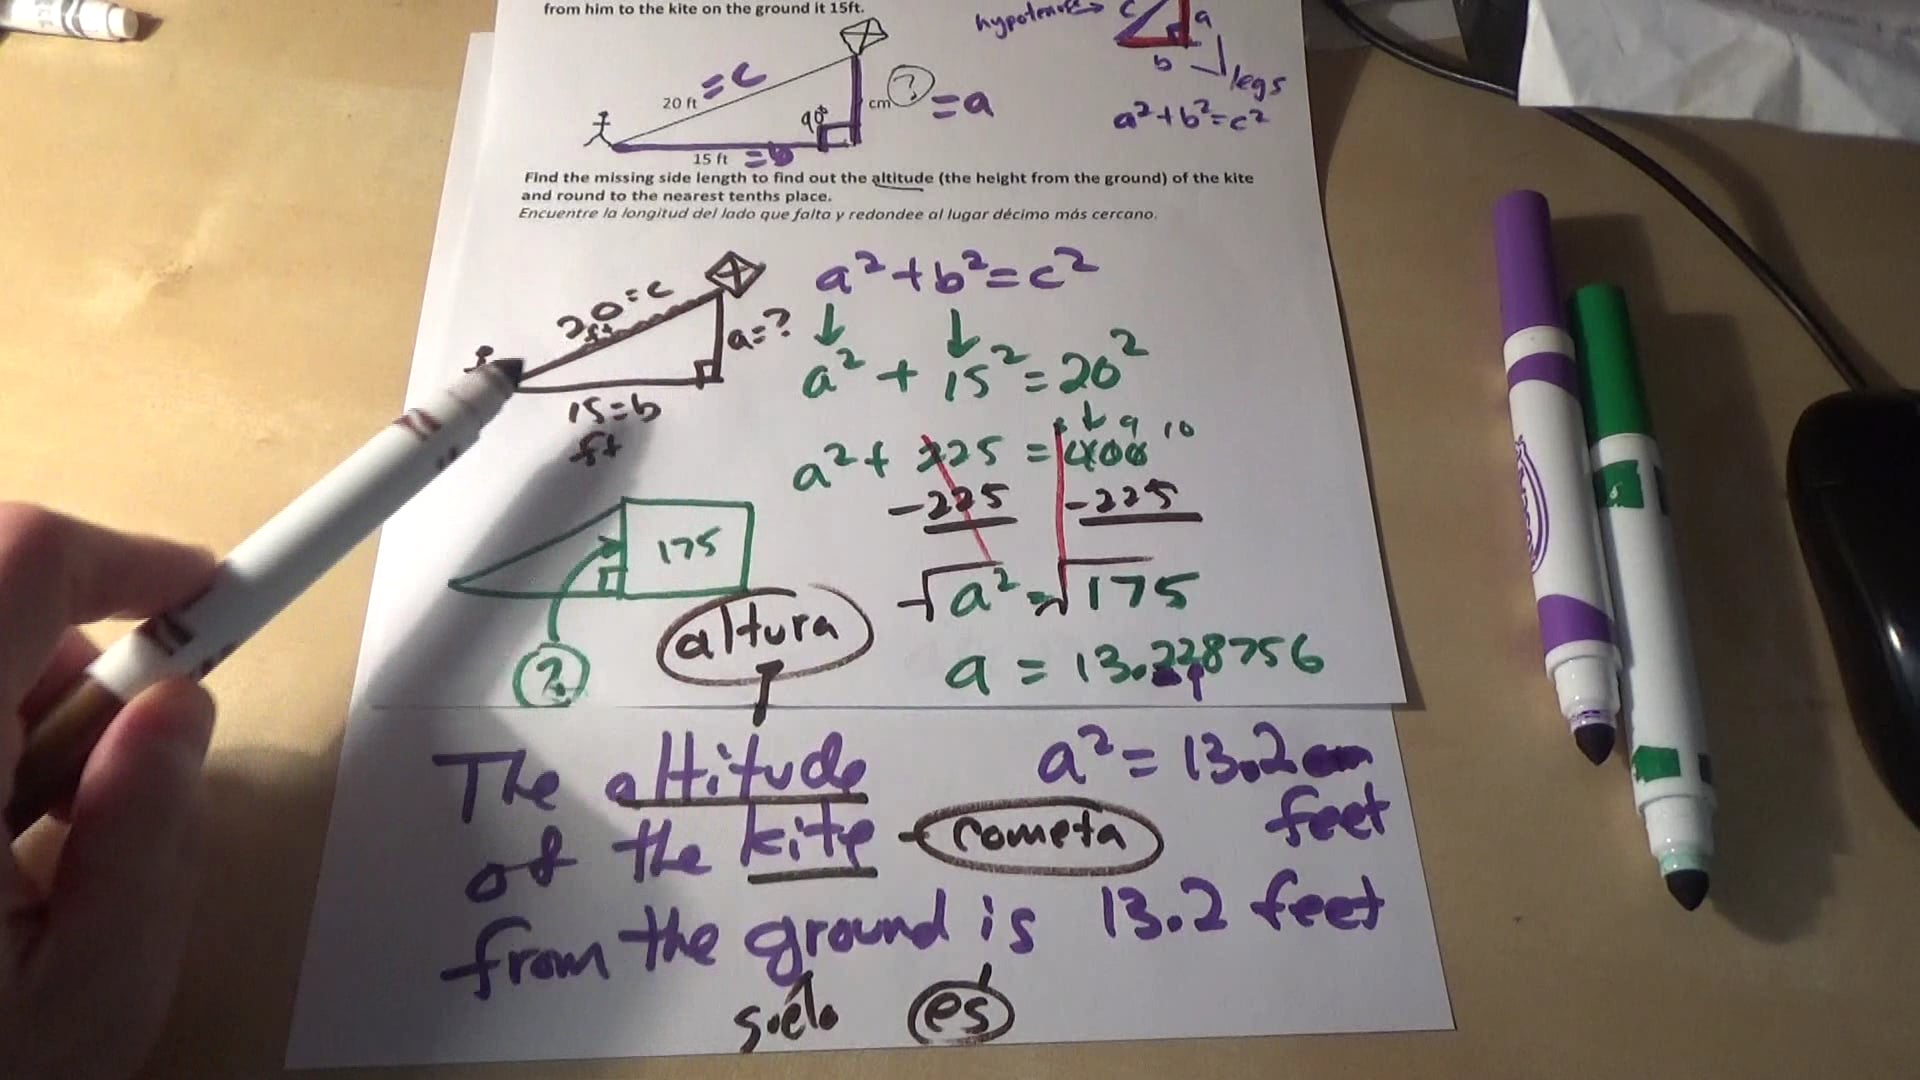 from him to the kite on the ground it 15ft.
hypotenuse → c a
b legs
a²+b²=c²
20 ft = c
90°
cm ? = a
15 ft = b
Find the missing side length to find out the altitude (the height from the ground) of the kite
and round to the nearest tenths place.
Encuentre la longitud del lado que falta y redondee al lugar décimo más cercano.
20 = c
ft
a = ?
15 = b
ft
a² + b² = c²
a² + 15² = 20²
9 10
a² + 225 = 400
-225 -225
√a² = √175
a = 13.228756
175
?
altura
The altitude
of the kite - cometa
from the ground is 13.2 feet
a² = 13.2 cm
feet
es